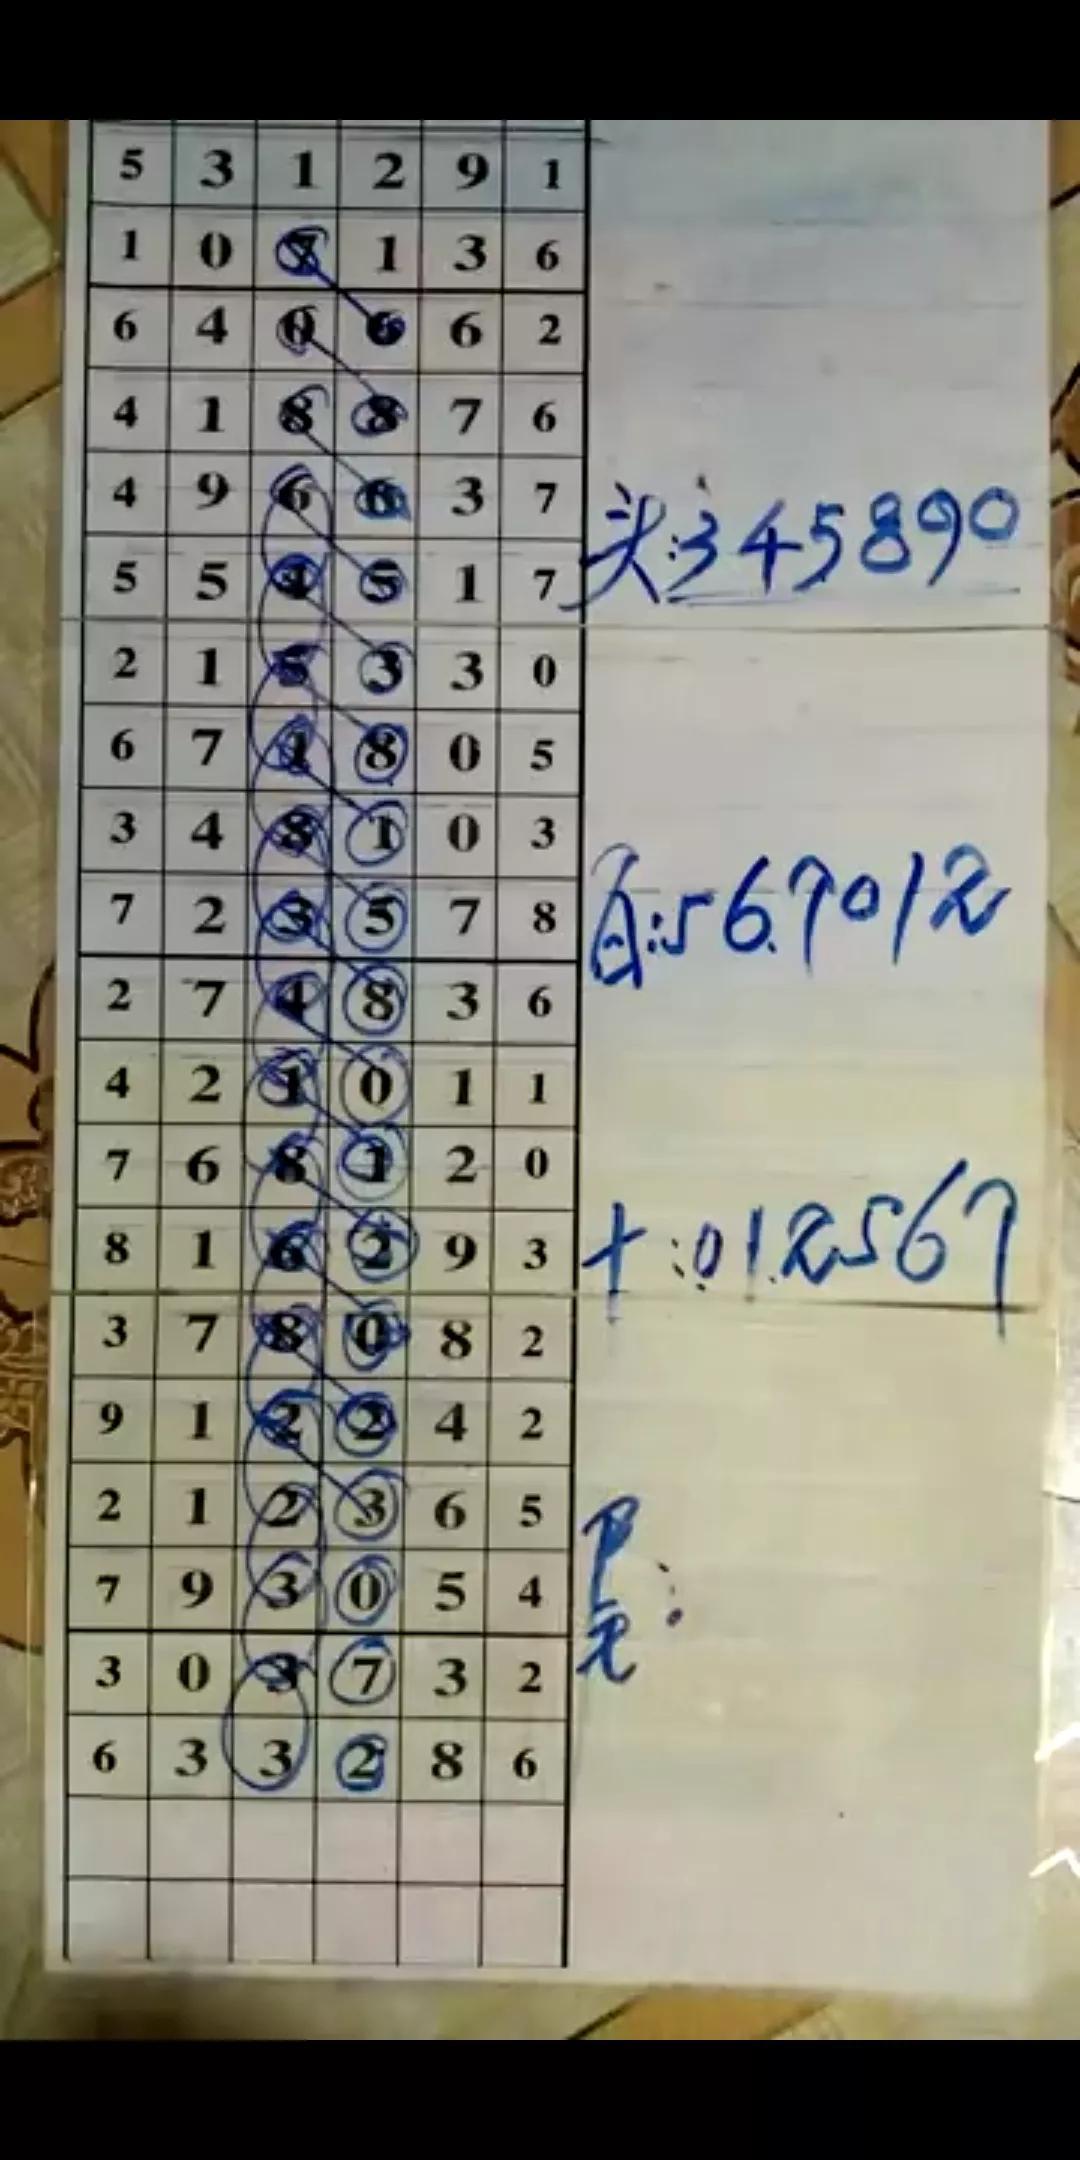 5 3 1 2 9 1
1 0 7 1 3 6
6 4 0 6 6 2
4 1 8 8 7 6
4 9 6 6 3 7
头:345890
5 5 4 5 1 7
2 1 5 3 3 0
6 7 1 8 0 5
3 4 8 1 0 3
7 2 3 5 7 8
百:567012
2 7 4 8 3 6
4 2 1 0 1 1
7 6 8 1 2 0
8 1 6 2 9 3
十:012567
3 7 8 0 8 2
9 1 2 2 4 2
2 1 2 3 6 5
7 9 3 0 5 4
3 0 3 7 3 2
6 3 3 2 8 6